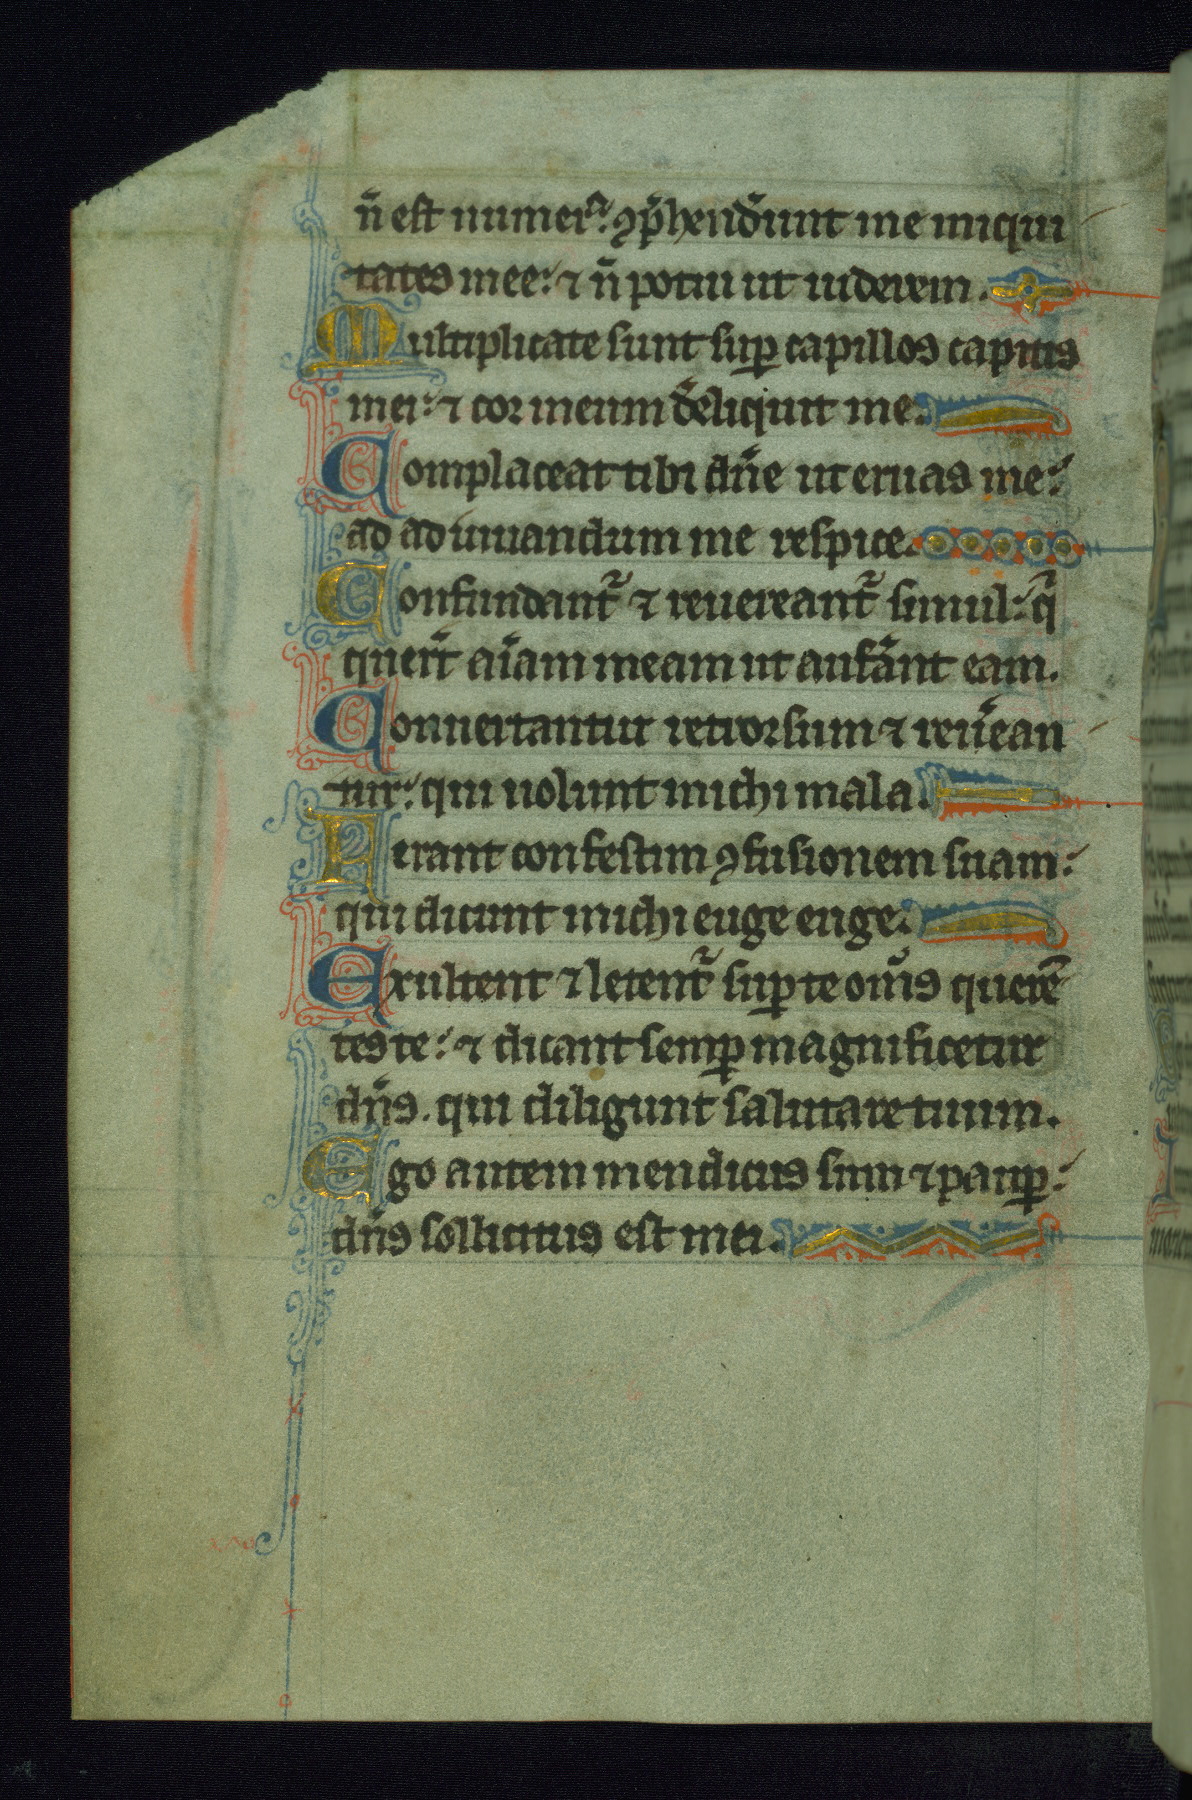 n̄ est numer᷒: ꝯp̄hend̄unt me iniqui
tates mee: ⁊ n̄ potui ut uiderem.
Multiplicate sunt sup̲ capillos capitis
mei: ⁊ cor meum d̄eliquit me.
Complaceat tibi dn̄e ut eruas me:
ad adiuuandum me respice.
Confundant᷑ ⁊ reuereant᷑ simul: q̄
quer̄t aīam meam ut aufāнt eam.
Conuertantur retrorsum ⁊ reūean
tur: qui uolunt michi mala.
Ferant confestim ꝯfusionem suam:
qui dicunt michi euge euge.
Exultent ⁊ letent᷑ suꝑ te om̄s querē
tes te: ⁊ dicant semꝑ magnificetur
dn̄s. qui diligunt salutare tuum.
Ego autem mendicus sum ⁊ pauꝑ:
dn̄s sollicitus est mei.